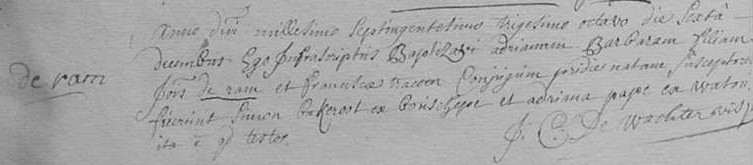 Anno dni millesimo septingentesimo trigesimo octavo die sextâ
decembris Ego Infrascriptus Baptizavi adrianam Barbaram filiam
de ram
de ram et Franciscæ conjugum pridie natam susceptores
fuerunt Simon Bakeroot ex et adriana pape ex watou
ita ē qd testor.
J. C. De wachter